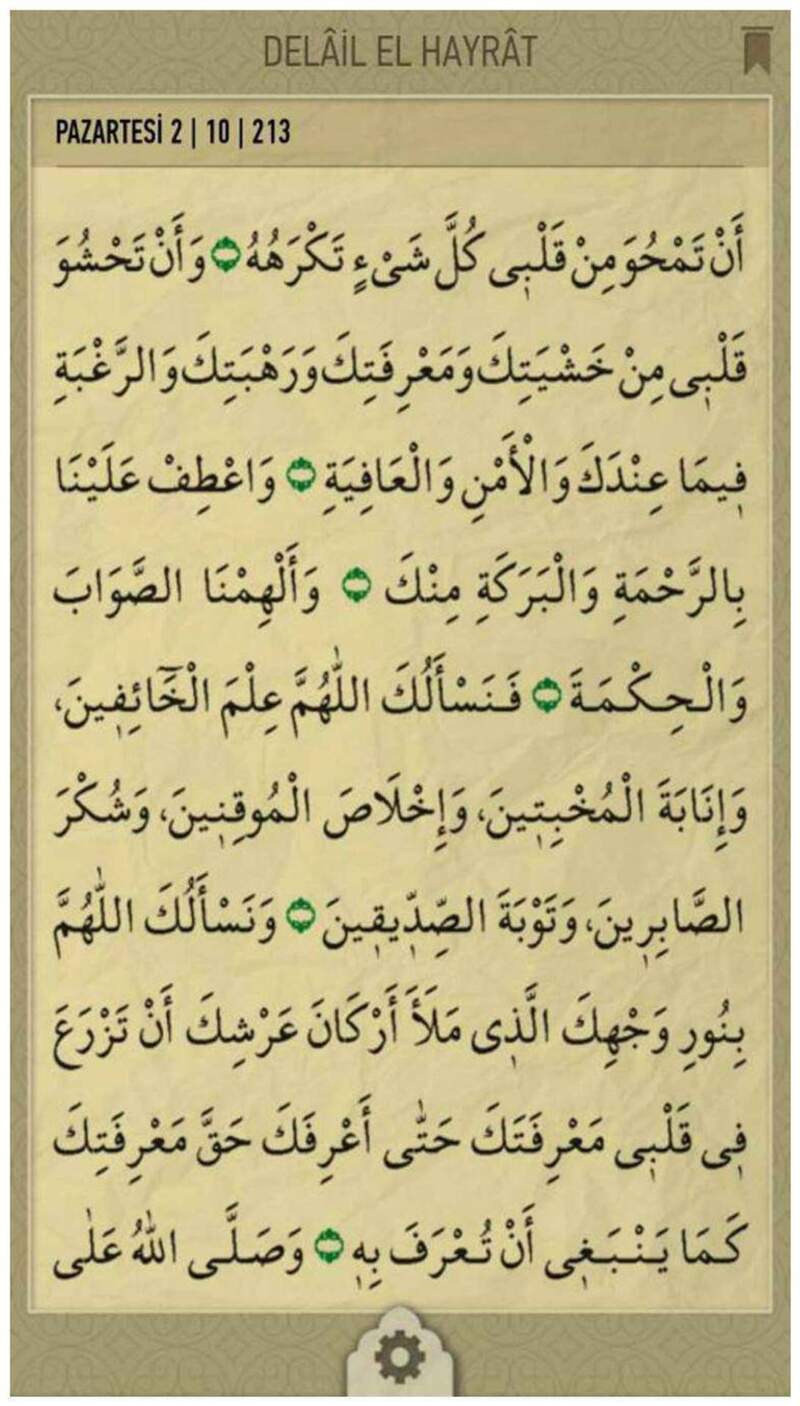 DELÂİL EL HAYRÂT
PAZARTESİ 2 | 10 | 213
أَنْ تَمْحُوَ مِنْ قَلْبِى كُلَّ شَىْءٍ تَكْرَهُهُ ۝ وَأَنْ تَحْشُوَ
قَلْبِى مِنْ خَشْيَتِكَ وَمَعْرِفَتِكَ وَرَهْبَتِكَ وَالرَّغْبَةِ
فِيمَا عِنْدَكَ وَالْأَمْنِ وَالْعَافِيَةِ ۝ وَاعْطِفْ عَلَيْنَا
بِالرَّحْمَةِ وَالْبَرَكَةِ مِنْكَ ۝ وَأَلْهِمْنَا الصَّوَابَ
وَالْحِكْمَةَ ۝ فَنَسْأَلُكَ اللّٰهُمَّ عِلْمَ الْخَٓائِفِينَ،
وَإِنَابَةَ الْمُخْبِتِينَ، وَإِخْلَاصَ الْمُوقِنِينَ، وَشُكْرَ
الصَّابِرِينَ، وَتَوْبَةَ الصِّدِّيقِينَ ۝ وَنَسْأَلُكَ اللّٰهُمَّ
بِنُورِ وَجْهِكَ الَّذِى مَلَأَ أَرْكَانَ عَرْشِكَ أَنْ تَزْرَعَ
فِى قَلْبِى مَعْرِفَتَكَ حَتّٰى أَعْرِفَكَ حَقَّ مَعْرِفَتِكَ
كَمَا يَنْبَغِى أَنْ تُعْرَفَ بِهِ ۝ وَصَلَّى اللّٰهُ عَلٰى